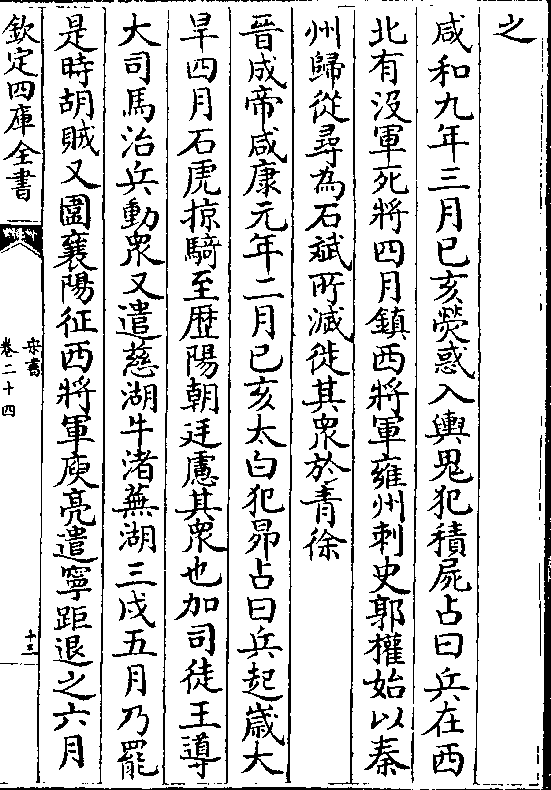 之
咸和九年三月己亥熒惑入輿鬼犯積屍占曰兵在西
北有没軍死將四月鎮西將軍雍州刺史郭權始以秦
州歸從尋為石斌所滅徙其衆於青徐
晉成帝咸康元年二月己亥太白犯昴占曰兵起歳大
旱四月石虎掠騎至歴陽朝廷慮其衆也加司徒王導
大司馬治兵動衆又遣慈湖牛渚蕪湖三戍五月乃罷
是時胡賊又圍襄陽征西將軍庾亮遣寧距退之六月
欽定四庫全書
宋書
卷二十四
十三